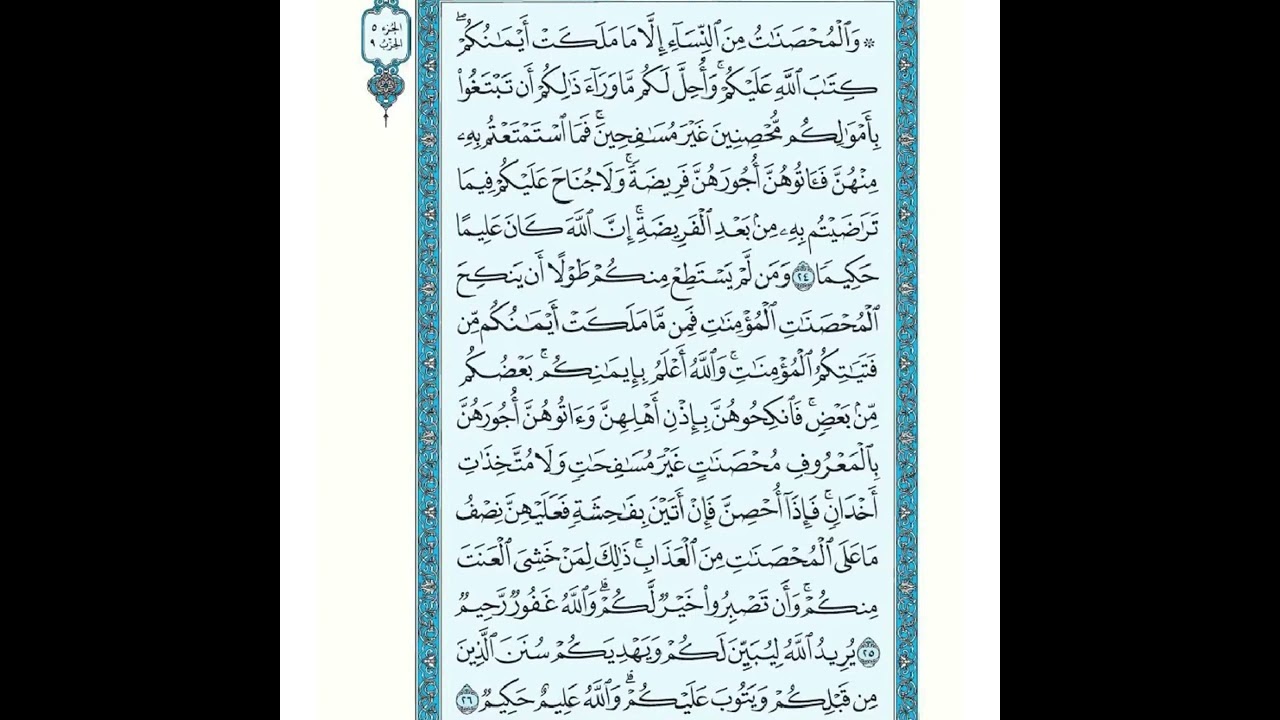 الجزء ٥
الحزب ٩
۞ وَٱلْمُحْصَنَٰتُ مِنَ ٱلنِّسَآءِ إِلَّا مَا مَلَكَتْ أَيْمَٰنُكُمْ ۖ
كِتَٰبَ ٱللَّهِ عَلَيْكُمْ ۚ وَأُحِلَّ لَكُم مَّا وَرَآءَ ذَٰلِكُمْ أَن تَبْتَغُوا۟
بِأَمْوَٰلِكُم مُّحْصِنِينَ غَيْرَ مُسَٰفِحِينَ ۚ فَمَا ٱسْتَمْتَعْتُم بِهِۦ
مِنْهُنَّ فَـَٔاتُوهُنَّ أُجُورَهُنَّ فَرِيضَةً ۚ وَلَا جُنَاحَ عَلَيْكُمْ فِيمَا
تَرَٰضَيْتُم بِهِۦ مِنۢ بَعْدِ ٱلْفَرِيضَةِ ۚ إِنَّ ٱللَّهَ كَانَ عَلِيمًا
حَكِيمًا ٢٤ وَمَن لَّمْ يَسْتَطِعْ مِنكُمْ طَوْلًا أَن يَنكِحَ
ٱلْمُحْصَنَٰتِ ٱلْمُؤْمِنَٰتِ فَمِن مَّا مَلَكَتْ أَيْمَٰنُكُم مِّن
فَتَيَٰتِكُمُ ٱلْمُؤْمِنَٰتِ ۚ وَٱللَّهُ أَعْلَمُ بِإِيمَٰنِكُم ۚ بَعْضُكُم
مِّنۢ بَعْضٍ ۚ فَٱنكِحُوهُنَّ بِإِذْنِ أَهْلِهِنَّ وَءَاتُوهُنَّ أُجُورَهُنَّ
بِٱلْمَعْرُوفِ مُحْصَنَٰتٍ غَيْرَ مُسَٰفِحَٰتٍ وَلَا مُتَّخِذَٰتِ
أَخْدَانٍ ۚ فَإِذَآ أُحْصِنَّ فَإِنْ أَتَيْنَ بِفَٰحِشَةٍ فَعَلَيْهِنَّ نِصْفُ
مَا عَلَى ٱلْمُحْصَنَٰتِ مِنَ ٱلْعَذَابِ ۚ ذَٰلِكَ لِمَنْ خَشِىَ ٱلْعَنَتَ
مِنكُمْ ۚ وَأَن تَصْبِرُوا۟ خَيْرٌ لَّكُمْ ۗ وَٱللَّهُ غَفُورٌ رَّحِيمٌ
٢٥ يُرِيدُ ٱللَّهُ لِيُبَيِّنَ لَكُمْ وَيَهْدِيَكُمْ سُنَنَ ٱلَّذِينَ
مِن قَبْلِكُمْ وَيَتُوبَ عَلَيْكُمْ ۗ وَٱللَّهُ عَلِيمٌ حَكِيمٌ ٢٦